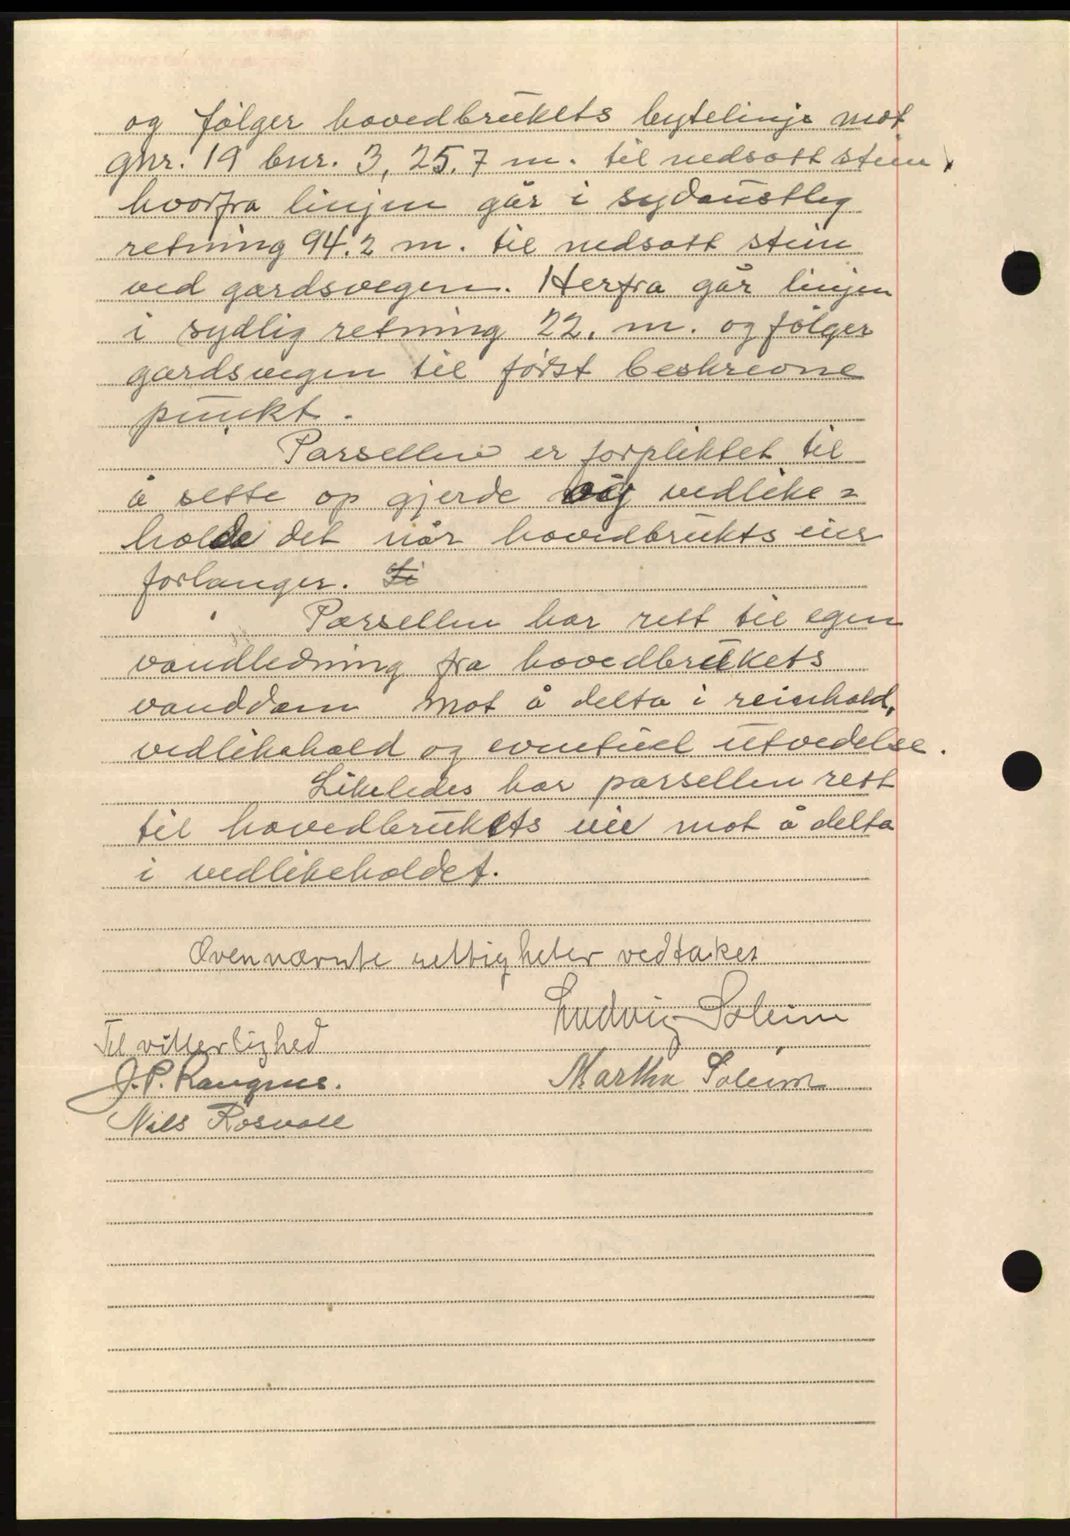 og følger hovedbrukets bytelinje mot
gnr. 19 bnr. 3, 25.7 m. til nedsatt stein,
hvorfra linjen går i sydaustleg
retning 94.2 m. til nedsatt stein
ved gardsvegen. Herfra går linjen
i sydlig retning 22. m. og følger
gardsvegen til først beskrevne
punkt.
Parsellen er forpliktet til
å sette op gjerde og vedlike=
holde det når hovedbrukts eier
forlanger. Li
Parsellen har rett til egen
vandledning fra hovedbrukets
vanddam mot å delta i reinhold,
vedlikehold og eventuel utvedelse.
Likeledes har parsellen rett
til hovedbrukets vei mot å delta
i vedlikeholdet.
Ovennævnte rettigheter vedtakes
Ludvig Soleim
Til vitterlighed
J. P. Rangnes. Martha Soleim
Nils Rosvoll